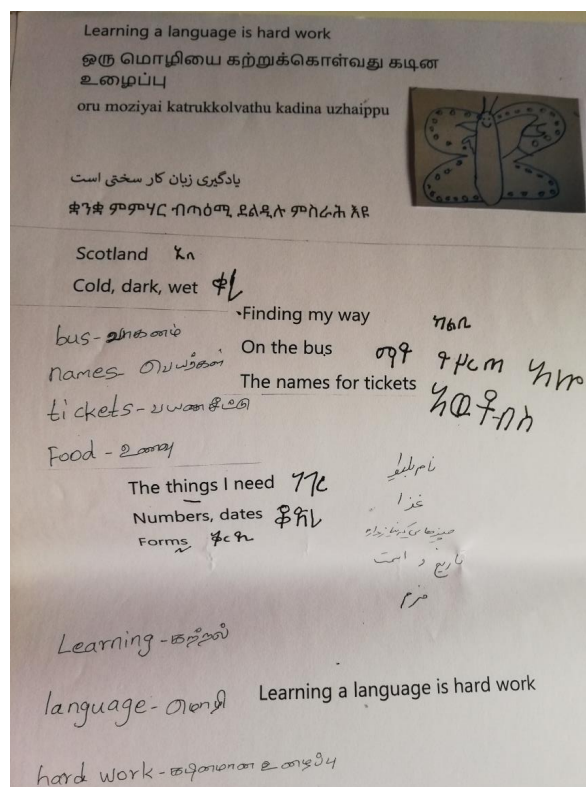 Learning a language is hard work
ஒரு மொழியை கற்றுக்கொள்வது கடின
உழைப்பு
oru moziyai katrukkolvathu kadina uzhaippu
یادگیری زبان کار سختی است
ቋንቋ ምምሃር ብጣዕሚ ደልዲሉ ምስራሕ እዩ
Scotland
Cold, dark, wet ቀሪ
Finding my way
bus - வாகனம்
On the bus
names பெயர்கள்
The names for tickets
tickets - பயணசீட்டு
Food - உணவு
The things I need ነገር
Numbers, dates ቆጸራ
Forms ቅርጺ
نام بلیط
غذا
تاریخ و
فرم
Learning - கற்றல்
language - மொழி
Learning a language is hard work
hard work - கடினமான உழைப்பு